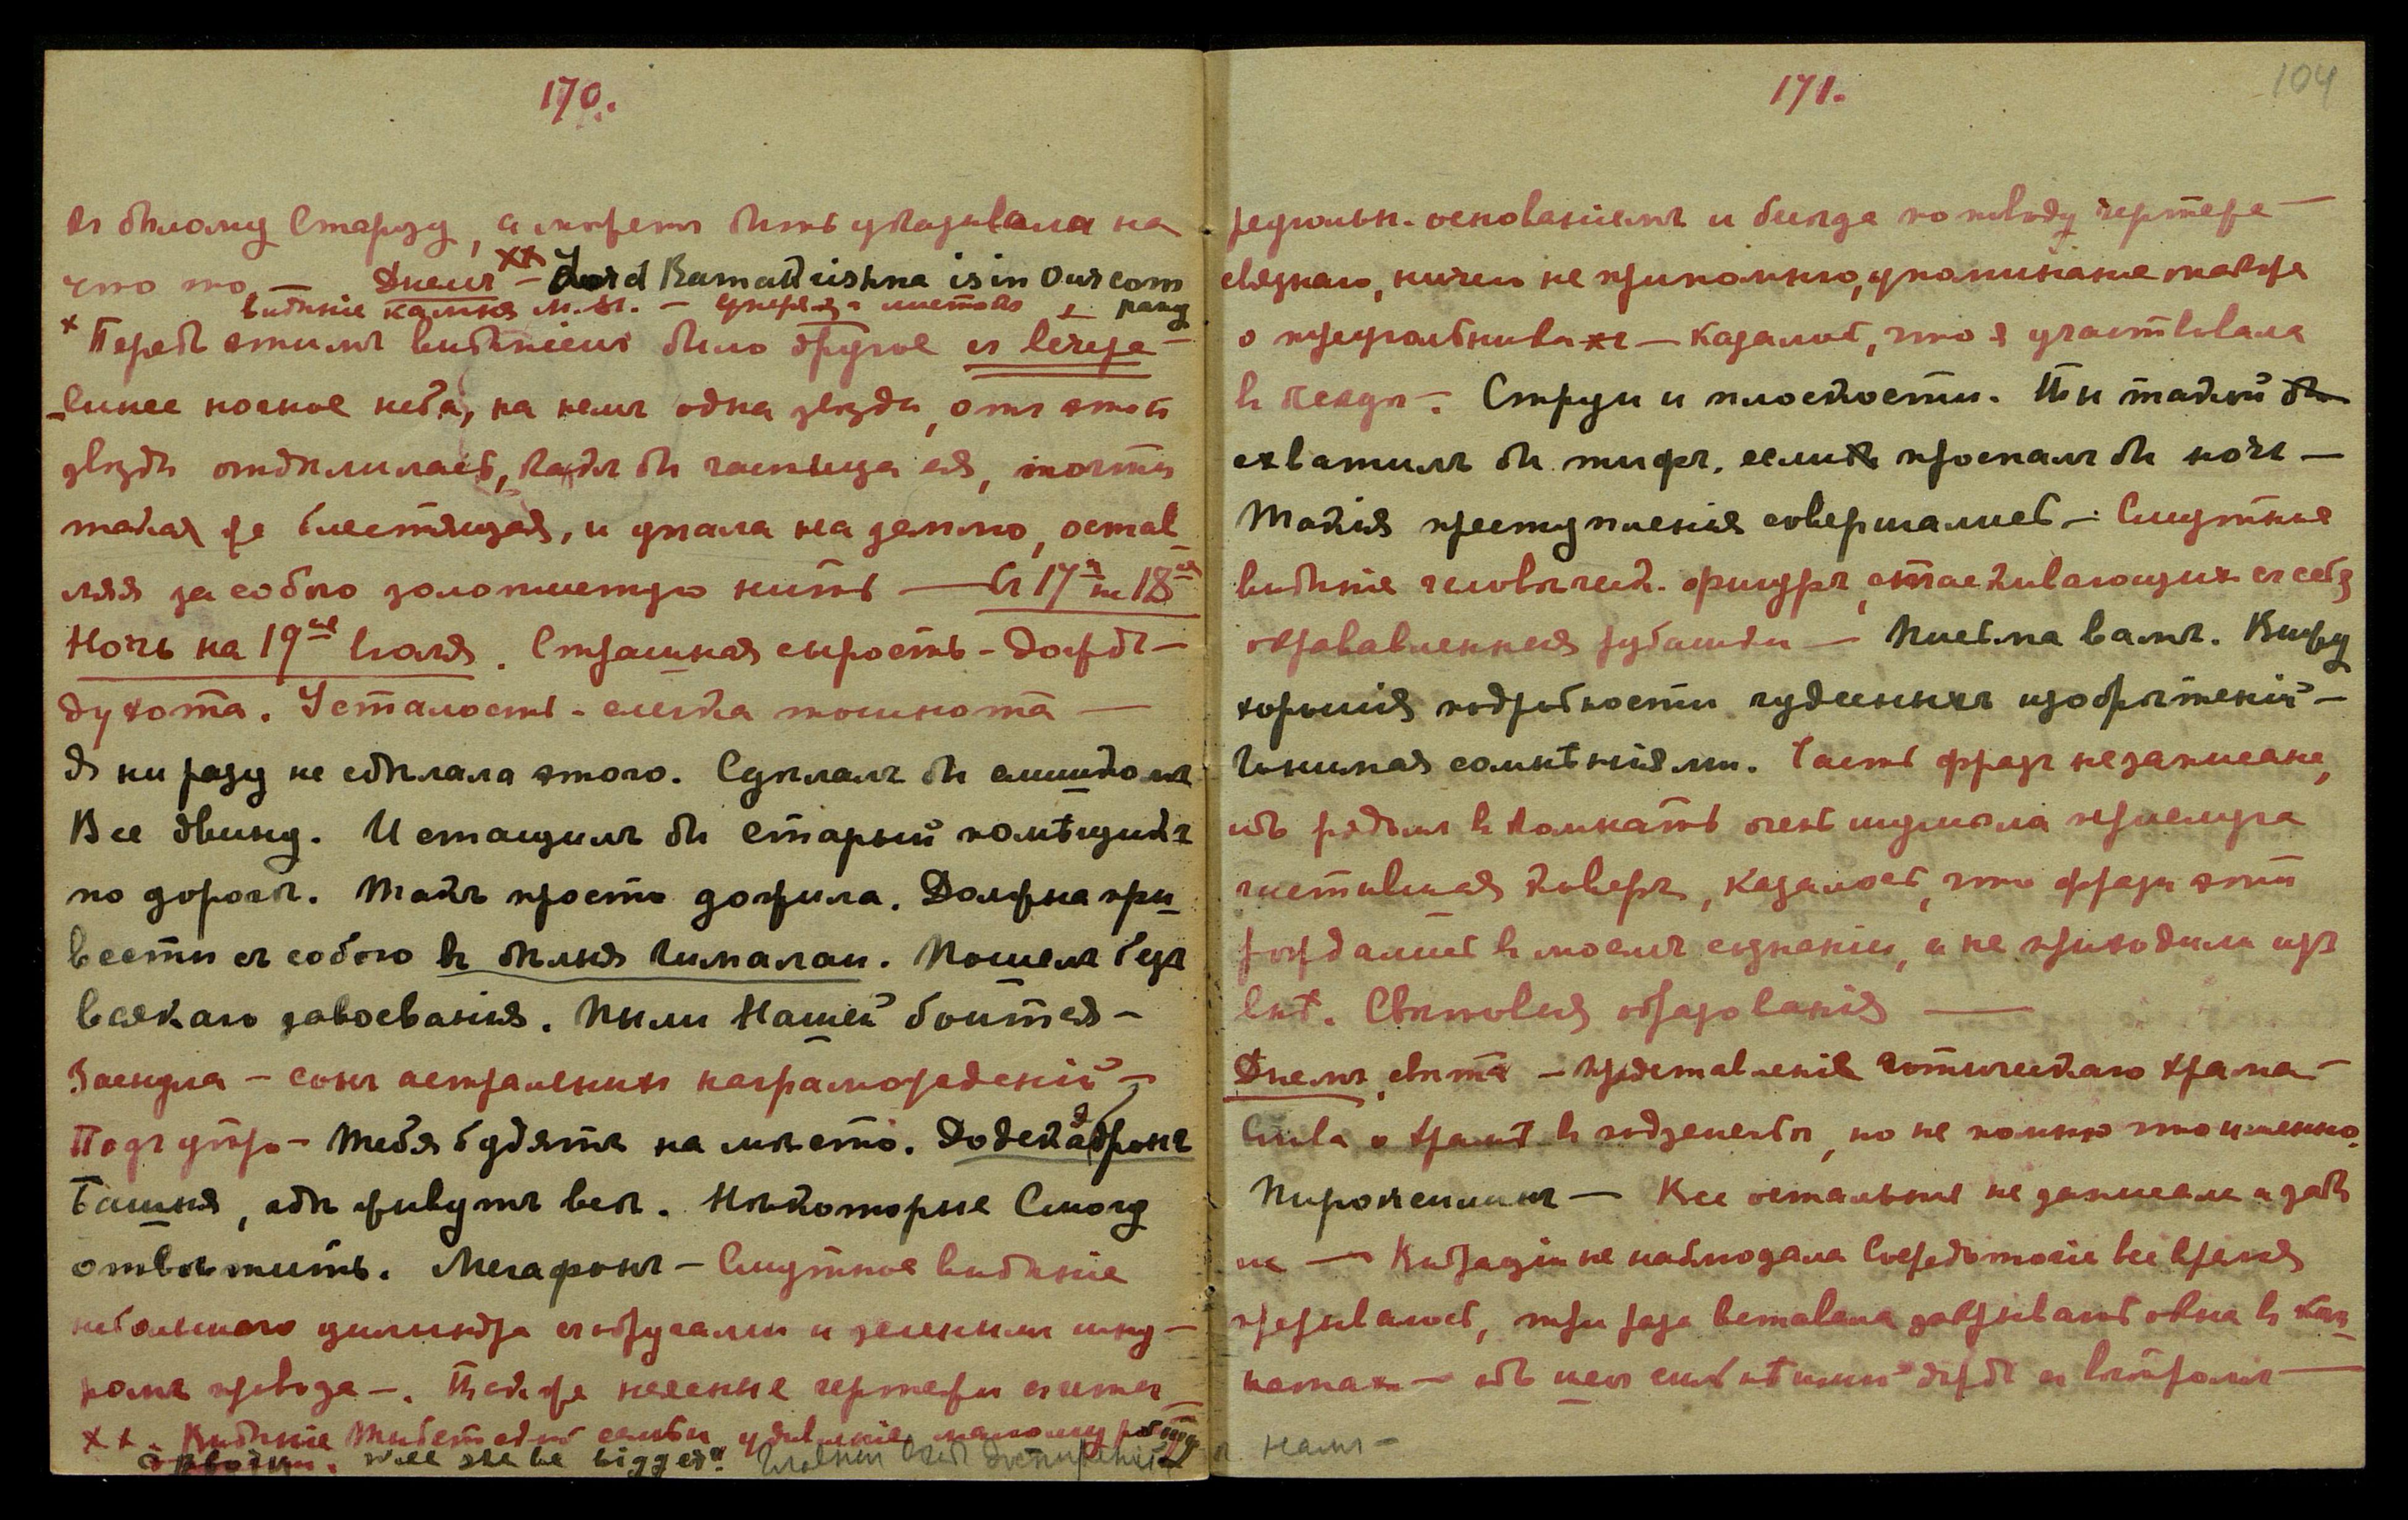 170.
къ бѣлому Старцу, а может быть указывала на
что то — Днемъ ×× — Lord Ramakrishna is in Our com
видѣніе камня М. М. — листок pany
× Передъ этимъ видѣніемъ было другое съ вечера —
синее ночное небо, на немъ одна звезда, отъ этой
звѣзды отдѣлилась, какъ бы частица ея, почти
такая же блестящая, и упала на землю, остав
ляя за собою золотистую нить — съ 17го на 18ое
Ночь на 19ое Іюля. Страшная сырость — дождь —
духота. Усталость — слегка тошнота —
Я ни разу не сдѣлала этого. Сдѣлалъ бы слишкомъ
Все двину. И стащилъ бы старый помѣщикъ
по дорогѣ. Такъ просто дожила. Должна при
вести съ собою въ бѣлыя Гималаи. Пошелъ безъ
всякаго завоеванія. Пыли Нашей боится —
Заснула — сонъ астральныхъ нагроможденій —
Подъ утро — Тебя будятъ на мѣсто. Додекаэдронъ
Башня, гдѣ живутъ всѣ. Нѣкоторые Смогу
отвѣтить. Мегафонъ — Смутное видѣніе
небольшого цилиндра съ обручами и зеленымъ шну —
ромъ провода —. Также неясные чертежи съ
××. Видѣніе Тибетской семьи, удивленіе малому росту
дѣвочки. Will she be bigger?
171.
104
основаніемъ и бесѣда по поводу чертежа —
связнаго, ничего не припомню, упоминаніе также
о треугольникахъ — Казалось, что я участвовала
въ бесѣдѣ —. Струи и плоскости. Ты такой бы
схватилъ бы тифъ, если проспалъ бы ночь —
Такія преступленія совершались — Смутное
видѣніе человѣчей. фигуръ, стаскивающихъ съ себя
окровавленныя рубашки — Письма вамъ. Вижу
хорошія подробности чудесныхъ изобрѣтеній —
Гонимая сомнѣніями. Часть фразъ не записана,
ибо рядомъ въ комнатѣ очень шумѣла прислуга
чистившая коверъ, казалось, что фразы эти
рождались въ моемъ сознаніи, а не приходили изъ
внѣ. Свѣтовыя образованія —
Днемъ, свѣта — представленіе готическаго храма —
Слова о храмѣ въ подземельѣ, но не помню что именно.
Пироксилинъ — Все остальное не записала и забы
ла — Вибрацій не наблюдала Сосредоточіе все время
прерывалось, три раза вставала закрывать окна въ ком
натахъ — ибо шелъ сильнѣйшій дождь съ вѣтромъ —
намъ —